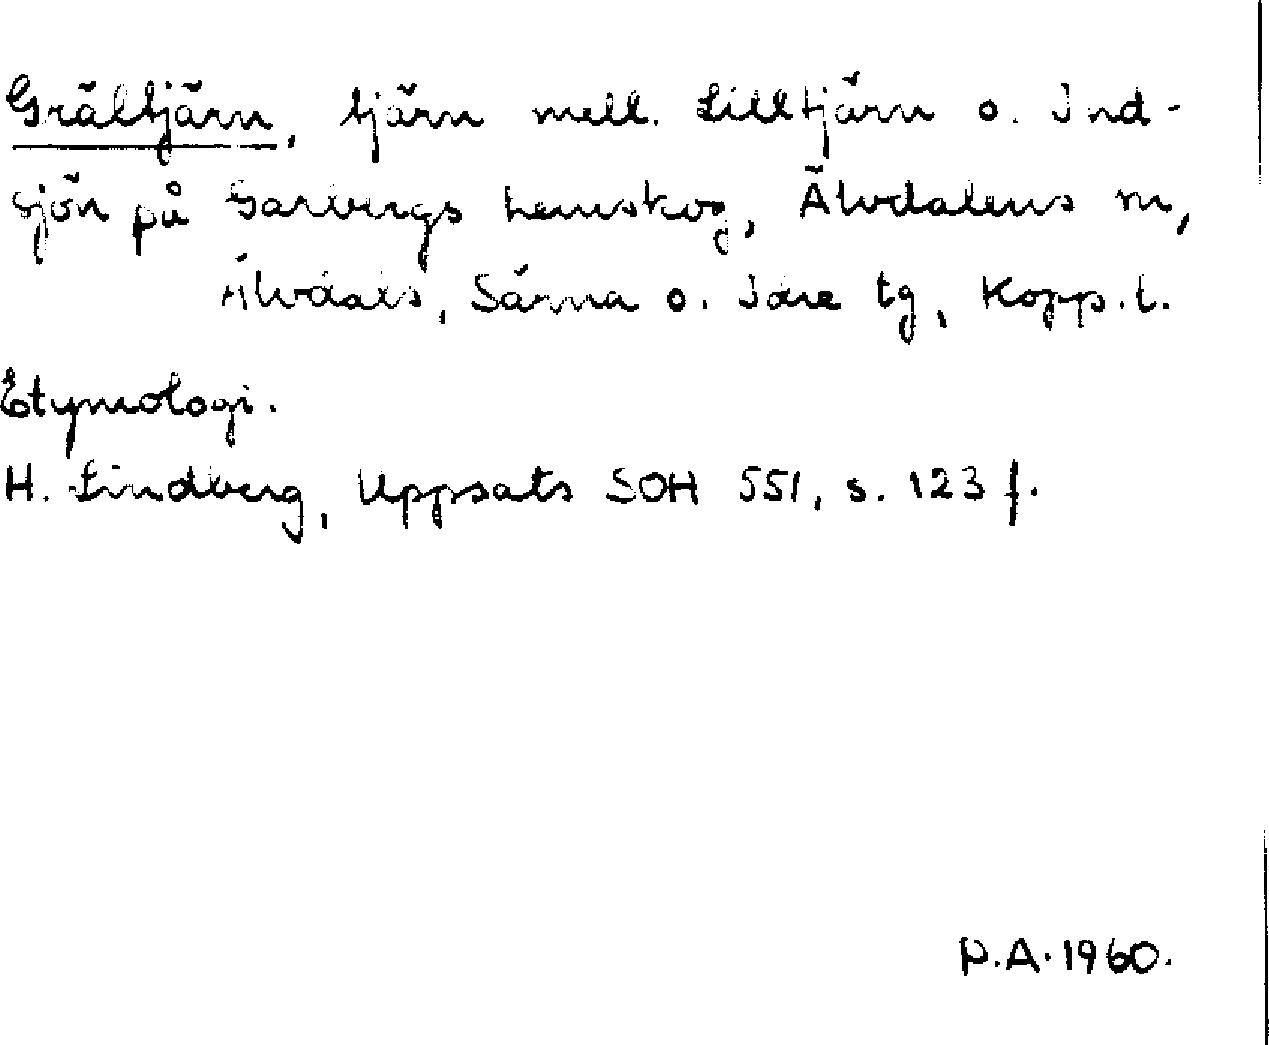 Grältjärn, tjärn mell. Lilltjärn o. Ind-
sjön på Garbergs hemskog, Älvdalens sn,
Älvdals, Särna o. Idre tg, Kopp. l.
Etymologi.
H. Lindberg, Uppsats SOH 551, s. 123 f.
P.A. 1960.